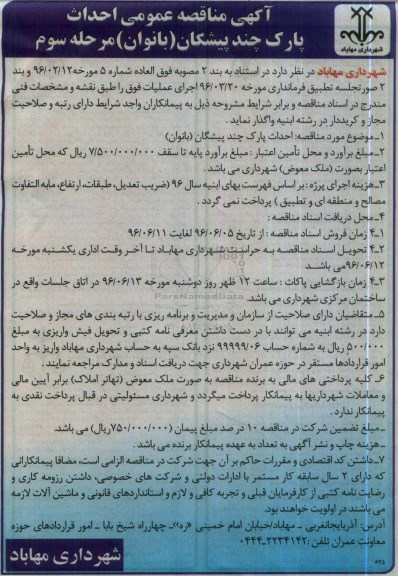 آگهی مناقصه عمومی احداث
پارک چند پیشگان(بانوان)مرحله سوم
شهرداری مهاباد
شهرداری مهاباد در نظر دارد در استناد به بند ۲ مصوبه فوق العاده شماره ۵ مورخه۹۶/۰۲/۱۲ و بند
۲ صورتجلسه تطبیق فرمانداری مورخه ۹۶/۰۳/۲۰ اجرای عملیات فوق را طبق نقشه و مشخصات فنی
مندرج در اسناد مناقصه و برابر شرایط مشروحه ذیل به پیمانکاران واجد شرایط دارای رتبه و صلاحیت
مجاز و کرببدار در رشته ابنیه واگذار نماید.
۱ـ موضوع مورد مناقصه: احداث پارک چند پیشگان (بانوان)
۲ـ مبلغ براورد و محل تأمین اعتبار : مبلغ برآورد پایه تا سقف ۷/۵۰۰/۰۰۰/۰۰۰ ریال که محل تأمین
اعتبار بصورت (ملک معوض) شهرداری می باشد.
۳ـ هزینه اجرای پرژه : بر اساس فهرست بهای ابنیه سال ۹۶ (ضریب تعدیل، طبقات، ارتفاع، مابه التفاوت
مصالح و منطقه ای و تطبیق ) پرداخت نمی گردد .
۴ـ محل دریافت اسناد مناقصه :
۴ـ۱ زمان فروش اسناد مناقصه : از تاریخ ۹۶/۰۶/۰۵ لغایت ۹۶/۰۶/۱۱
۴ـ۲ تحویل اسناد مناقصه به حراست شهرداری مهاباد تا آخر وقت اداری یکشنبه مورخه
۹۶/۰۶/۱۲می باشد
۴ـ۳ زمان بازگشایی پاکات : ساعت ۱۲ ظهر روز دوشنبه مورخه ۹۶/۰۶/۱۳ در اتاق جلسات واقع در
ساختمان مرکزی شهرداری می باشد.
۵ـ متقاضیان دارای صلاحیت از سازمان و مدیریت و برنامه ریزی با رتبه بندی های مجاز و صلاحیت
دارد در رشته ابنیه می توانند با در دست داشتن معرفی نامه کتبی و تحویل فیش واریزی به مبلغ
۵۰۰/۰۰۰ ریال به شماره حساب ۹۹۹۹۹/۰۶ نزد بانک سپه به حساب شهرداری مهاباد واریز به واحد
امور قراردادها مستقر در حوزه عمران شهرداری جهت دریافت اسناد و مدارک مراجعه نمایند .
۶ـ کلیه پرداختی های مالی به برنده مناقصه به صورت ملک معوض (تهاتر املاک) برابر آیین مالی
و معاملات شهرداریها به پیمانکار پرداخت میگردد و شهرداری مسئولیتی در قبال پرداخت نقدی به
پیمانکار ندارد .
ـ مبلغ تضمین شرکت در مناقصه ۱۰ در صد مبلغ پیمان (۷۵۰/۰۰۰/۰۰۰ریال) می باشد.
ـ هزینه چاپ و نشر آگهی به تعداد به عهده پیمانکار برنده می باشد.
۷ـ داشتن کد اقتصادی و مقررات حاکم بر آن جهت شرکت در مناقصه الزامی است، مضافا پیمانکارانی
که دارای ۲ سال سابقه کار مستمر با ادارات دولتی و شرکت های خصوصی، داشتن رزومه کاری و
رضایت نامه کتبی از کارفرمایان قبلی و تجربه کافی و لازم و استانداردهای قانونی و ماشین آلات لازمه
می باشند در اولویت خواهند بود.
آدرس: آذربایجانغربی ـ مهاباد/خیابان امام خمینی «ره»ـ چهارراه شیخ بابا ـ امور قراردادهای حوزه
معاونت عمران تلفن :۲۲۳۴۱۴۲ـ۰۴۴۴
شهرداری مهاباد
ParsNamadData